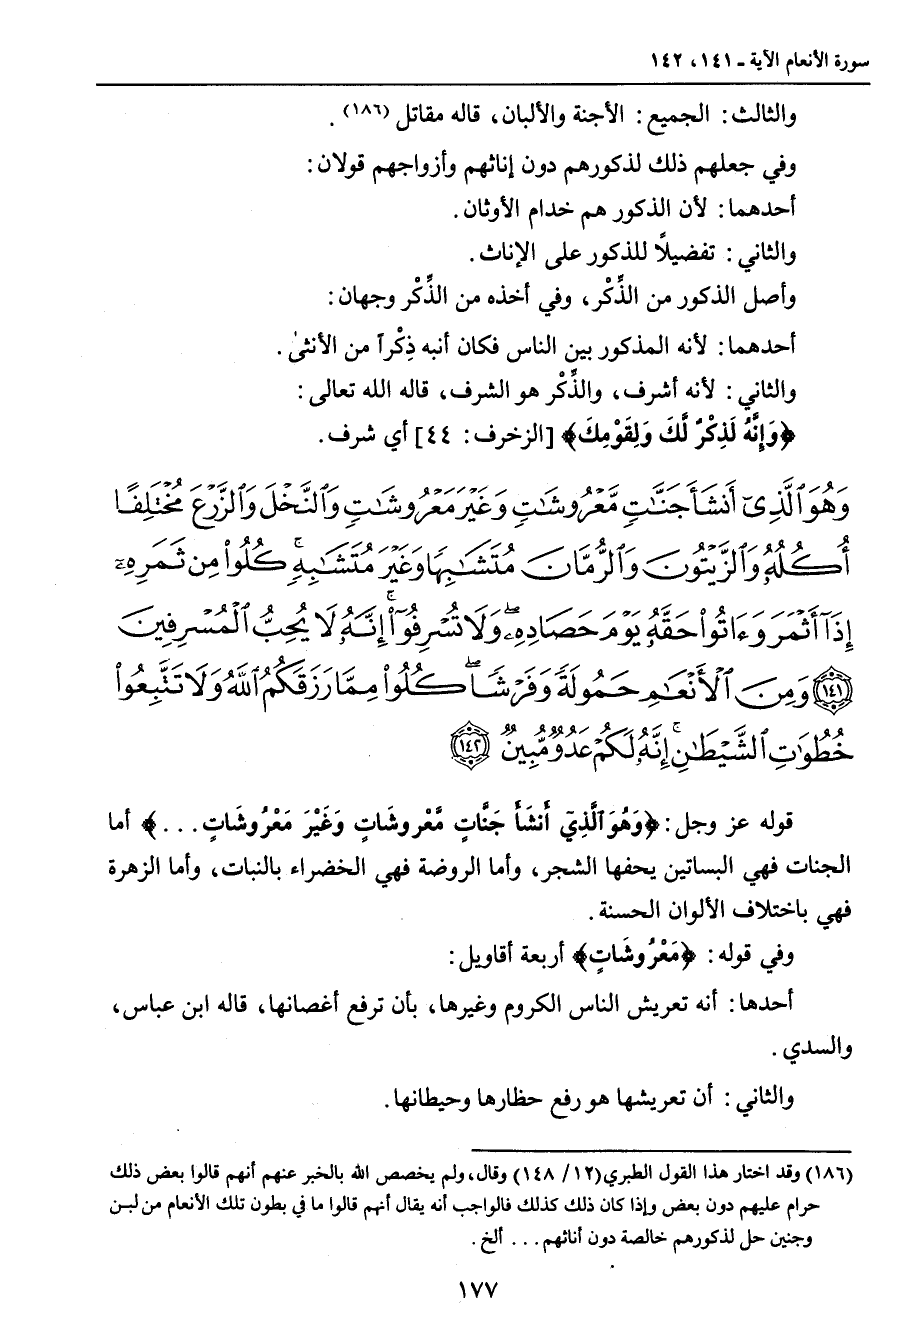 سورة الأنعام الآية - ١٤١، ١٤٢
والثالث: الجميع: الأجنة والألبان، قاله مقاتل (١٨٦).
وفي جعلهم ذلك لذكورهم دون إناثهم وأزواجهم قولان:
أحدهما: لأن الذكور هم خدام الأوثان.
والثاني: تفضيلاً للذكور على الإناث.
وأصل الذكور من الذِّكْر، وفي أخذه من الذِّكْر وجهان:
أحدهما: لأنه المذكور بين الناس فكان أنبه ذِكْراً من الأنثىٰ.
والثاني: لأنه أشرف، والذِّكْر هو الشرف، قاله الله تعالى:
﴿وَإِنَّهُ لَذِكْرٌ لَّكَ وَلِقَوْمِكَ﴾ [الزخرف: ٤٤] أي شرف.
وَهُوَ ٱلَّذِىٓ أَنشَأَ جَنَّـٰتٍ مَّعْرُوشَـٰتٍ وَغَيْرَ مَعْرُوشَـٰتٍ وَٱلنَّخْلَ وَٱلزَّرْعَ مُخْتَلِفًا
أُكُلُهُۥ وَٱلزَّيْتُونَ وَٱلرُّمَّانَ مُتَشَـٰبِهًا وَغَيْرَ مُتَشَـٰبِهٍ ۚ كُلُوا۟ مِن ثَمَرِهِۦٓ
إِذَآ أَثْمَرَ وَءَاتُوا۟ حَقَّهُۥ يَوْمَ حَصَادِهِۦ ۖ وَلَا تُسْرِفُوٓا۟ ۚ إِنَّهُۥ لَا يُحِبُّ ٱلْمُسْرِفِينَ
﴿١٤١﴾ وَمِنَ ٱلْأَنْعَـٰمِ حَمُولَةً وَفَرْشًا ۖ كُلُوا۟ مِمَّا رَزَقَكُمُ ٱللَّهُ وَلَا تَتَّبِعُوا۟
خُطُوَٰتِ ٱلشَّيْطَـٰنِ ۚ إِنَّهُۥ لَكُمْ عَدُوٌّ مُّبِينٌ ﴿١٤٢﴾
قوله عز وجل: ﴿وَهُوَ ٱلَّذِيٓ أَنشَأَ جَنَّاتٍ مَّعْروشَاتٍ وَغَيْرَ مَعْرُوشَاتٍ...﴾ أما
الجنات فهي البساتين يحفها الشجر، وأما الروضة فهي الخضراء بالنبات، وأما الزهرة
فهي باختلاف الألوان الحسنة.
وفي قوله: ﴿مَعْرُوشَاتٍ﴾ أربعة أقاويل:
أحدها: أنه تعريش الناس الكروم وغيرها، بأن ترفع أغصانها، قاله ابن عباس،
والسدي.
والثاني: أن تعريشها هو رفع حظارها وحيطانها.
(١٨٦) وقد اختار هذا القول الطبري (١٢/ ١٤٨) وقال، ولم يخصص الله بالخبر عنهم أنهم قالوا بعض ذلك
حرام عليهم دون بعض وإذا كان ذلك كذلك فالواجب أنه يقال أنهم قالوا ما في بطون تلك الأنعام من لبن
وجنين حل لذكورهم خالصة دون أناثهم... ألخ.
١٧٧